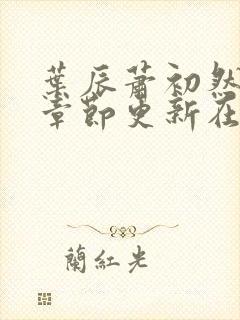 葉辰蕭初然
章節更新在
蘭紅光